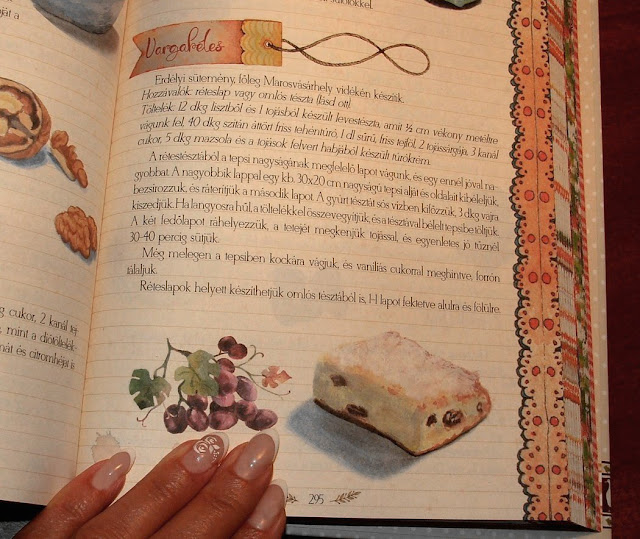 ját a
sütőtökkel.
Vargabéles
Erdélyi sütemény, főleg Marosvásárhely vidékén készítik.
Hozzávalók: réteslap vagy omlós tészta (lásd ott)
Töltelék: 12 dkg lisztből és 1 tojásból készült levestészta, amit ½ cm vékony metéltre
vágunk fel, 40 dkg szitán áttört friss tehéntúró, 1 dl sűrű, friss tejföl, 2 tojássárgája, 3 kanál
cukor, 5 dkg mazsola és a tojások felvert habjából készült túrókrém.
A rétestésztából a tepsi nagyságának megfelelő lapot vágunk, és egy ennél jóval na-
gyobbat. A nagyobbik lappal egy kb. 30x20 cm nagyságú tepsi alját és oldalait kibéleljük,
bezsírozzuk, és ráterítjük a második lapot. A gyúrt tésztát sós vízben kifőzzük, 3 dkg vajra
kiszedjük. Ha langyosra hűl, a töltelékkel összevegyítjük, és a tésztával bélelt tepsibe töltjük.
A két fedőlapot ráhelyezzük, a tetejét megkenjük tojással, és egyenletes jó tűznél
30-40 percig sütjük.
Még melegen a tepsiben kockára vágjuk, és vaníliás cukorral meghintve, forrón
tálaljuk.
Réteslapok helyett készíthetjük omlós tésztából is, 1-1 lapot fektetve alulra és fölülre.
g cukor, 2 kanál tej
, mint a diótöltelék-
mát és citromhéjat is
295